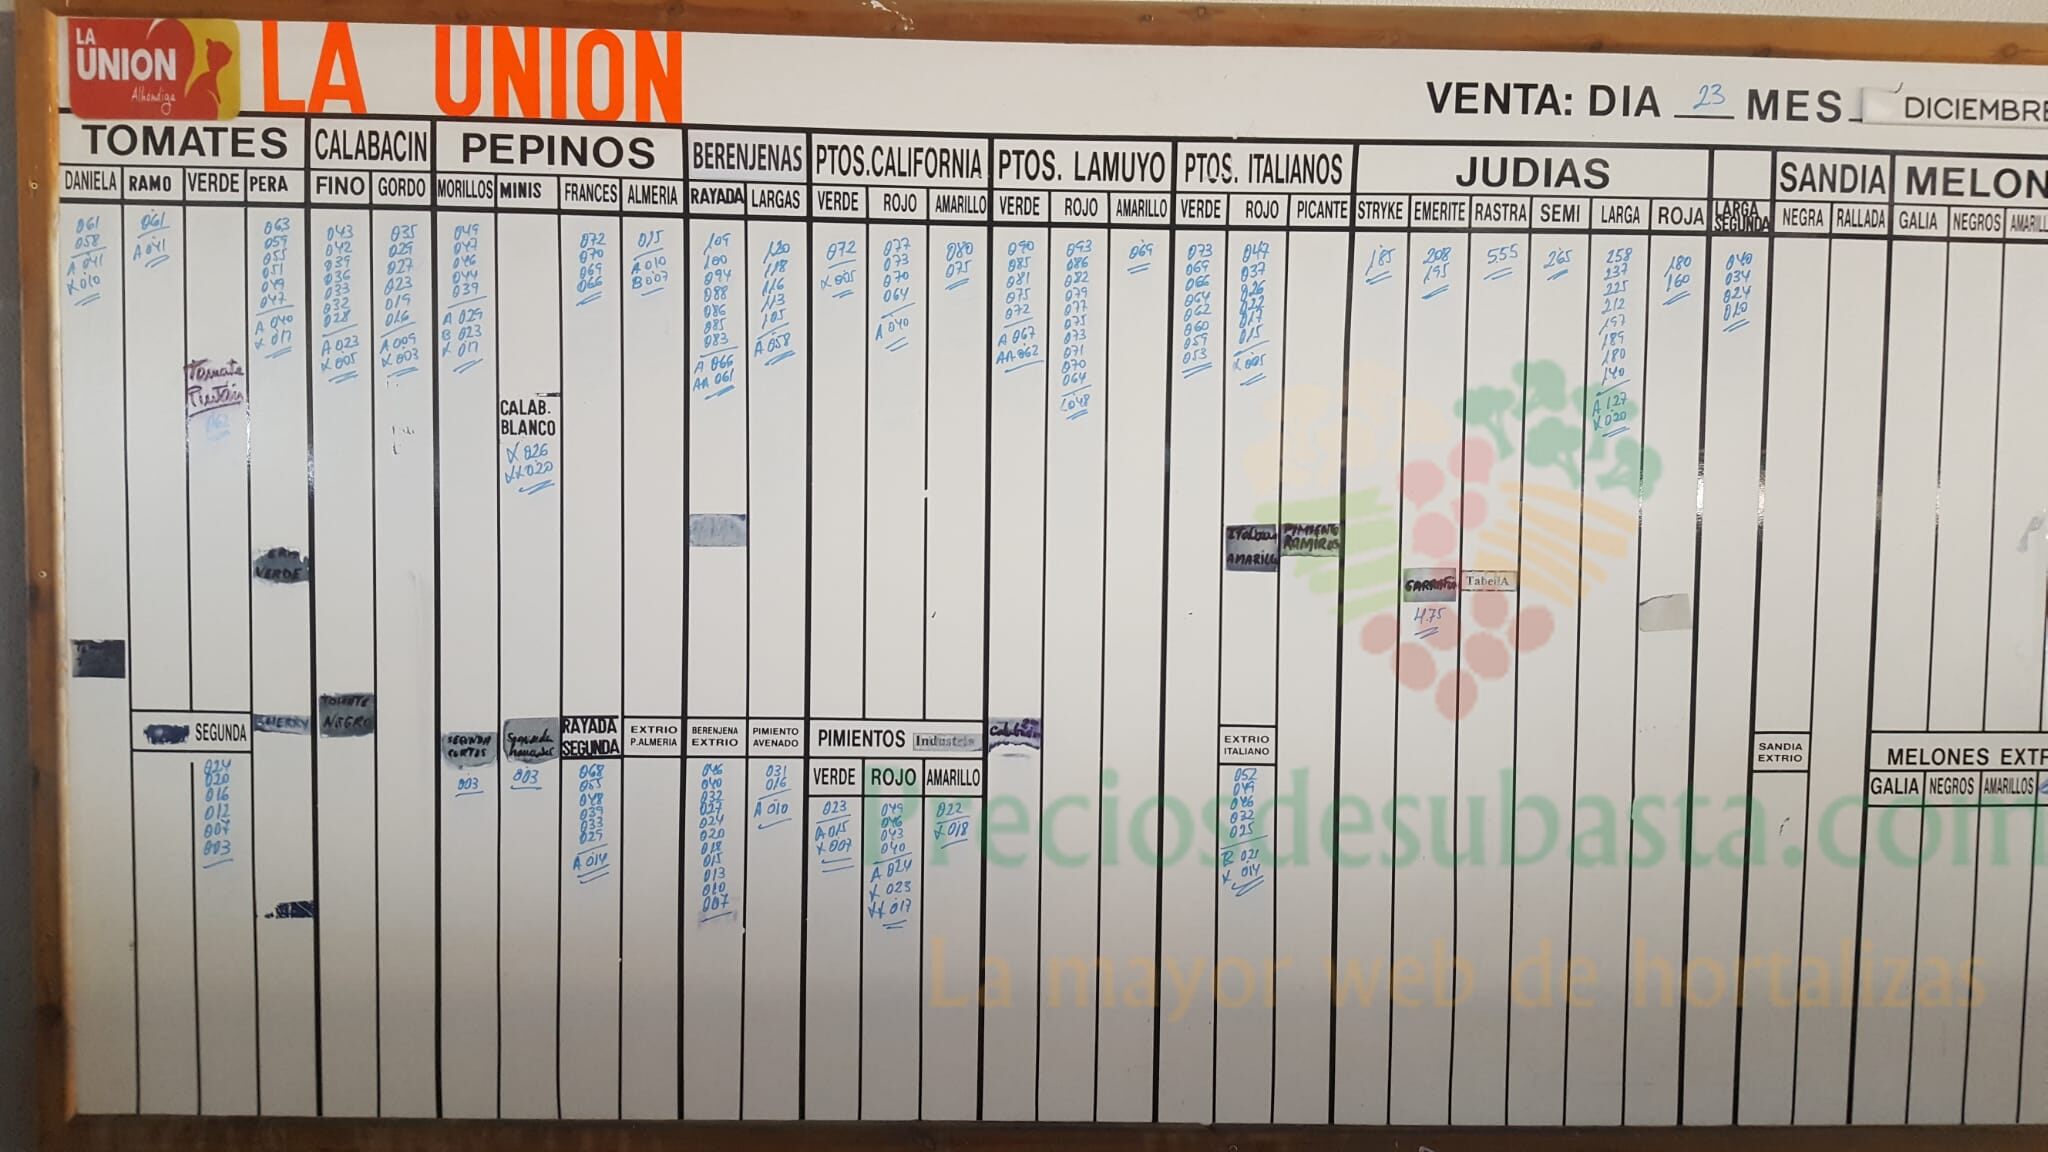 LA
UNION
Alhondiga
LA UNION
VENTA: DIA 23 MES DICIEMBRE
TOMATES CALABACIN PEPINOS BERENJENAS PTOS.CALIFORNIA PTOS. LAMUYO PTOS. ITALIANOS JUDIAS LARGA SEGUNDA SANDIA MELON
DANIELA RAMO VERDE PERA FINO GORDO MORILLOS MINIS FRANCES ALMERIA RAYADA LARGAS VERDE ROJO AMARILLO VERDE ROJO AMARILLO VERDE ROJO PICANTE STRYKE EMERITE RASTRA SEMI LARGA ROJA NEGRA RALLADA GALIA NEGROS
061
058
A 041
X 010
061
A 041
Tomate
062
063
059
055
051
049
047
A 040
X 017
043
042
039
036
033
032
028
A 023
X 005
035
029
027
023
019
016
A 009
X 003
049
047
046
044
039
A 029
B 023
X 017
CALAB.
BLANCO
X 026
XX 020
072
070
069
066
015
A 010
B 007
109
100
094
088
086
085
083
A 066
AA 061
120
118
116
113
105
A 058
072
X 005
077
073
070
064
A 040
080
075
090
085
081
075
072
A 067
AA 062
093
086
082
079
077
075
073
071
070
064
069
073
069
066
064
062
060
059
053
047
037
026
022
017
015
X 005
185
208
195
555
265
258
237
225
212
197
189
180
140
A 127
X 020
180
160
040
034
024
010
VERDE
ITALIANO
AMARILLO
PIMIENTO
RAMIROS
TabellA
475
TOMATE
NEGRO
SEGUNDA CHERRY
SEGUNDA
CORTOS
Segunda
RAYADA
SEGUNDA
EXTRIO
P.ALMERIA
BERENJENA
EXTRIO
PIMIENTO
AVENADO
PIMIENTOS Industria
VERDE ROJO AMARILLO
EXTRIO
ITALIANO
SANDIA
EXTRIO
MELONES EXTR
GALIA NEGROS AMARILLOS
024
020
016
012
007
003
003
003
068
055
048
039
033
029
A 014
046
040
032
027
024
020
018
015
013
010
007
031
016
A 010
023
A 015
X 007
049
046
043
040
A 024
X 023
XX 017
022
X 018
052
049
046
032
025
B 021
X 014
Preciosdesubasta.com
La mayor web de hortalizas